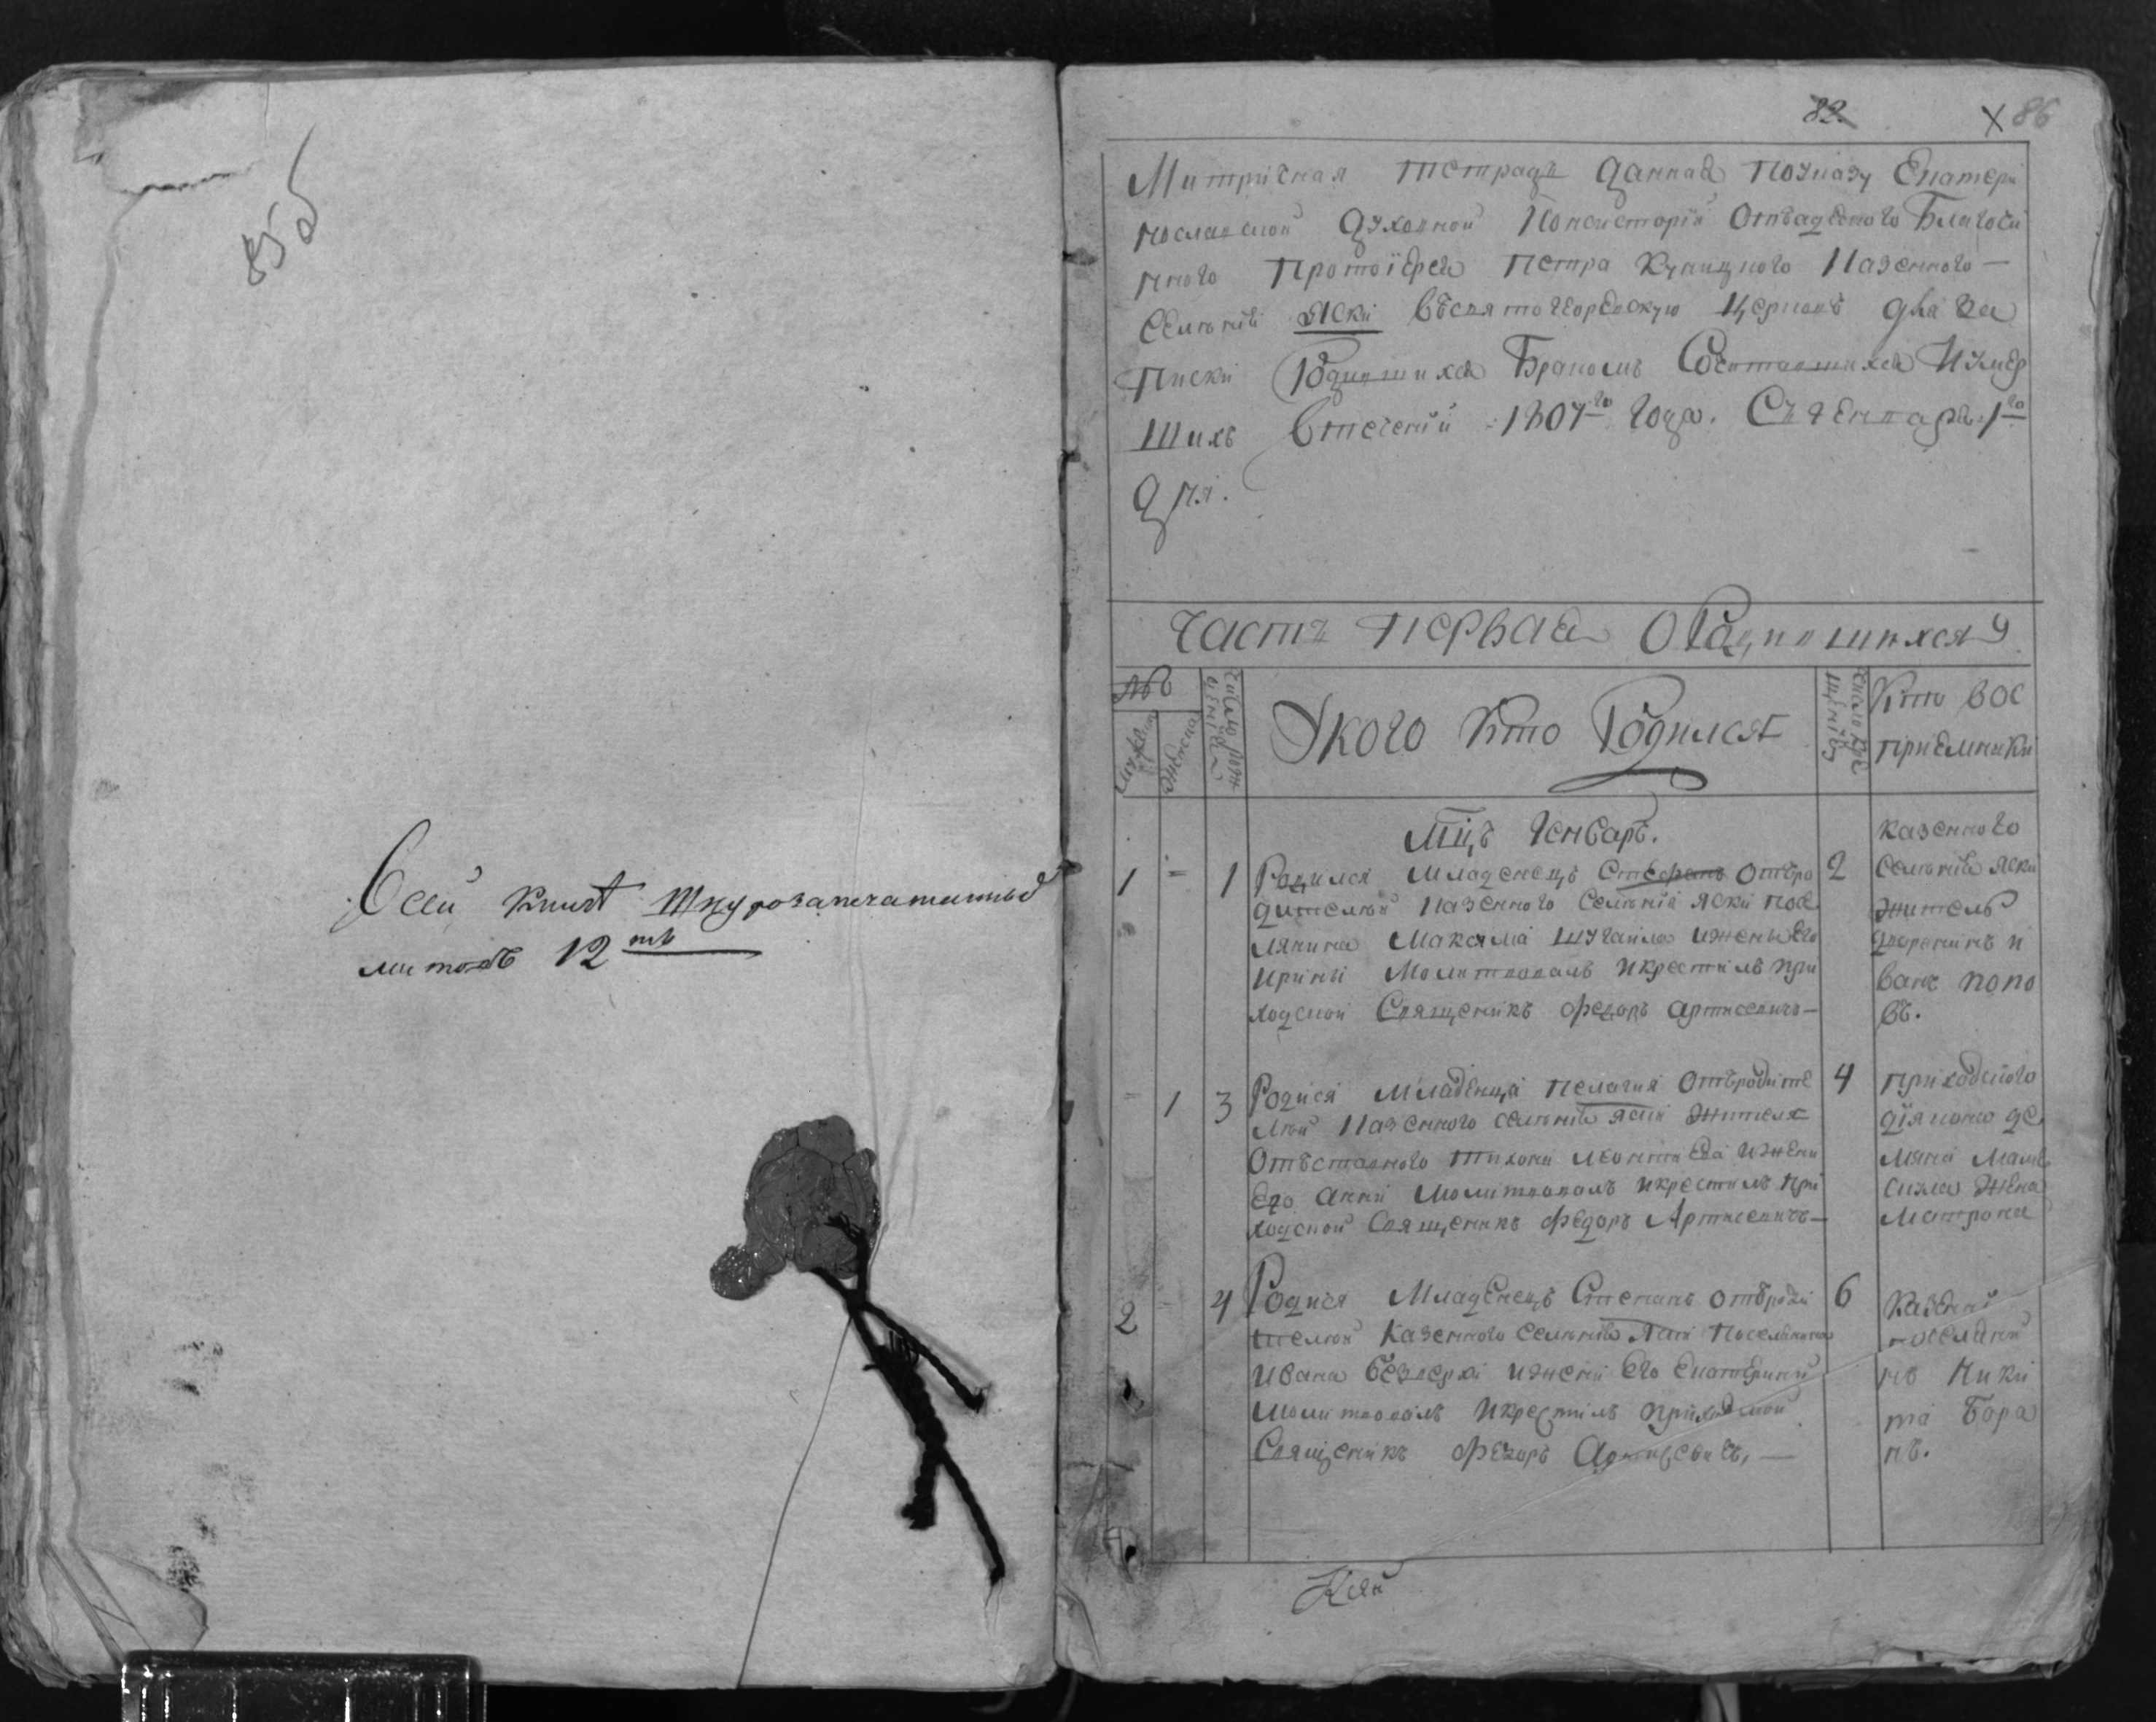 85об
Всей книгѣ шнурозапечатанныхъ
листовъ 12ть
83. 86
Митричная тетрадь данная поуказу Екатери
нославской духовной Консисторіи отвѣдѣного Благочи
нного Протоіерея Петра Куницкого Казенного
Селенія Яски въсвятогеоргевскую церковь для за
писки Родившихся Бракомъ Сочетавшихся Иумер
шихъ Втеченіи 1807го года. Съгенваря 1го
дня.
Часть первая ОРодившихся
№
мужеска
женска
число рожденія
Укого Кто Родился
число крещенія
Кто вос
приемники
Мцъ Генварь.
1 - 1 Родился младенецъ Стефанъ отъро
дителей Казенного Селенія Яски посе
лянина Максима Шугайла ижены его
ирины Молитвовалъ икрестилъ при
ходской Священикъ Федоръ Артисевичъ
2
казенного
Селенія Яски
житель
дворенинъ и
ванъ попо
въ.
- 1 3 Родися младенца пелагия отъродите
лей Казенного селенія яски жителя
отъставного тихона леонтиева ижены
его анны Молитвовалъ икрестилъ при
ходской Священикъ Федоръ Артисевичъ
4
приходского
діякона де
мяна
жена
Матрона
2 4 Родися Младенецъ Степанъ отъроди
телей казенного селенія Яски поселянина
ивана ижены его екатерины
молитвовалъ икрестилъ приходской
Священикъ Федоръ Артисевичъ,
6
Казенный
поселяни
нъ Ники
та Бора
нъ.